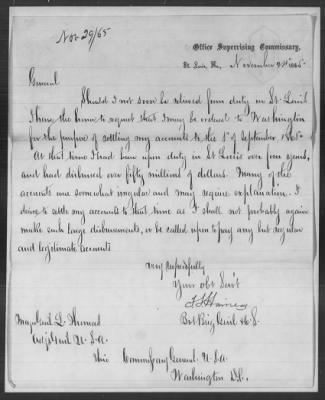 Nov 29/65
Office Supervising Commissary,
St. Louis, Mo., November 21st 1865
General
Should I not soon be relieved from duty in St. Louis
I have the honor to request that I may be ordered to Washington
for the purpose of settling my accounts to the 1st of September 1865.
At that time I had been upon duty in St Louis over four years,
and had disbursed over fifty millions of dollars. Many of the
accounts are somewhat irregular and may require explanation. I
desire to settle my accounts to that time as I shall not probably again
make such large disbursements, or be called upon to pay any but regular
and legitimate accounts
Very respectfully
Your obt Servt
T J Haines
Bvt Brig Genl
Maj Genl L. Thomas
Adjt Genl U.S.A.
Thro' Commissary General U.S.A.
Washington D.C.